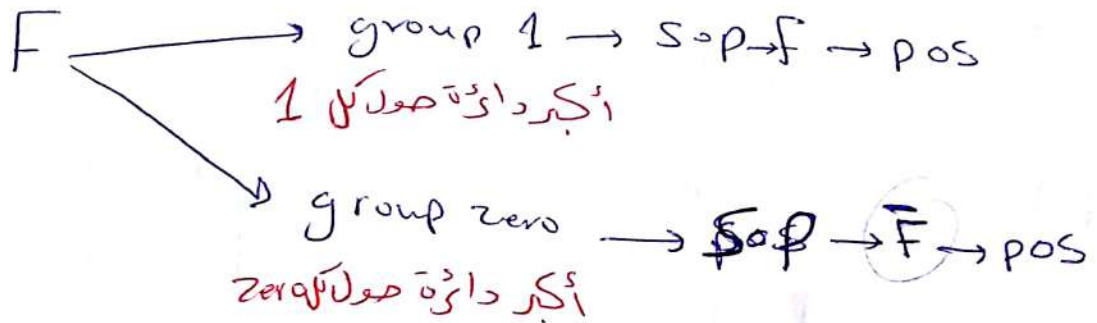 F → group 1 → sop → f → pos
أكبر دائرة حول كل 1
group zero → Sop → F̅ → pos
أكبر دائرة حول كل zero